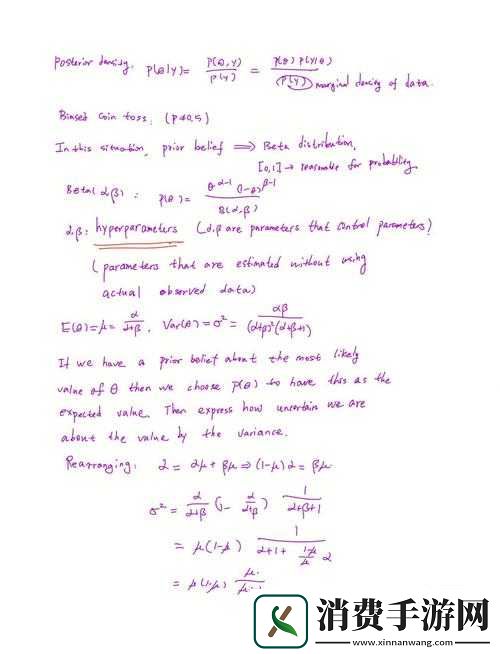 Posterior density. P(θ|y) = P(θ,y) / P(y) = P(θ) P(y|θ) / P(y) marginal density of data.
Biased coin toss. (P≠0.5)
In this situation, prior belief ⟹ Beta distribution,
[0,1] → reasonable for probability
Beta(α,β) : P(θ) = θ^(α-1) (1-θ)^(β-1) / B(α,β)
α,β: hyperparameters (α,β are parameters that control parameters)
(parameters that are estimated without using
actual observed data)
E(θ)=μ= α/(α+β), Var(θ)=σ²= αβ/((α+β)²(α+β+1))
If we have a prior belief about the most likely
value of θ then we choose P(θ) to have this as the
expected value. Then express how uncertain we are
about the value by the variance.
Rearranging: α = αμ + βμ ⇒ (1-μ)α = βμ
σ² = α/(α+β) (1- α/(α+β)) 1/(α+β+1)
= μ(1-μ) 1/(α+1+ (1-μ)/μ α)
= μ(1-μ) μ
消费手游网
www.xinnanwang.com